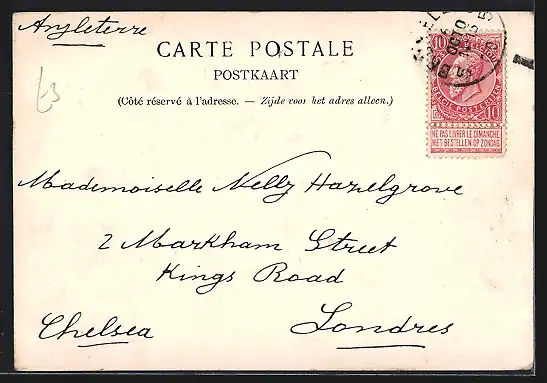 Angleterre
CARTE POSTALE
POSTKAART
(Côté réservé à l'adresse. — Zijde voor het adres alleen.)
10 10
BELGIE POSTERIJEN
10
NE PAS LIVRER LE DIMANCHE
NIET BESTELLEN OP ZONDAG
Mademoiselle Nelly Hazelgrove
2 Markham Street
Kings Road
Chelsea Londres